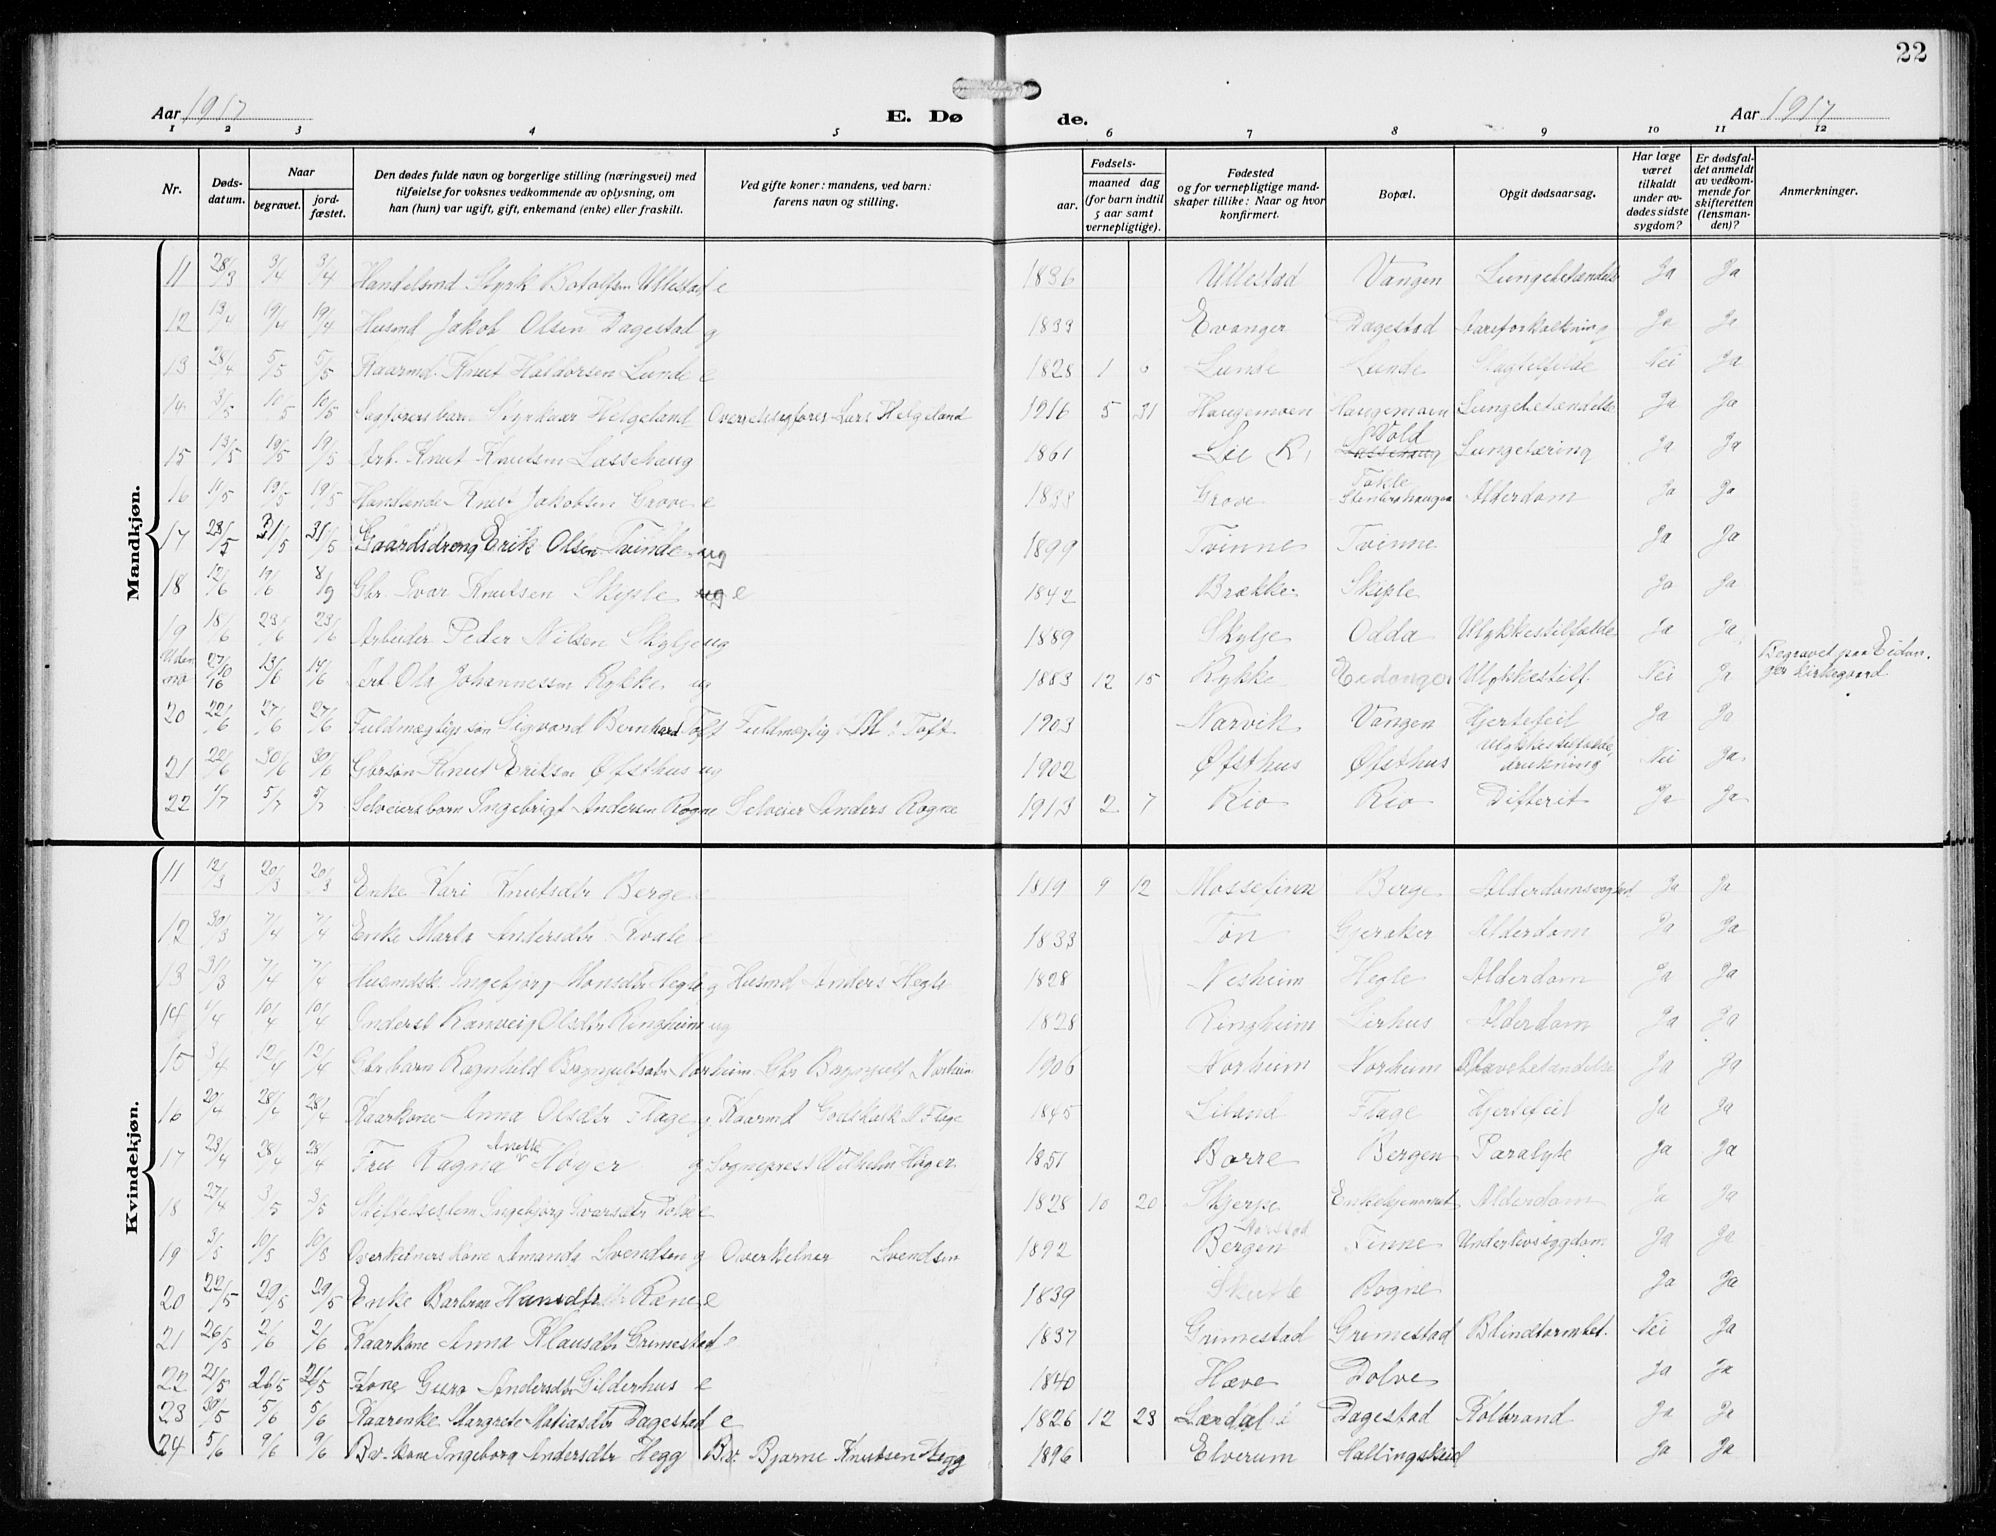 22
Aar 1917
E. Dø de.
Aar 1917
1 2 3 4 5 6 7 8 9 10 11 12
Nr. Døds-datum. Naar begravet. jord-fæstet. Den dødes fulde navn og borgerlige stilling (næringsvei) med tilføielse for voksnes vedkommende av oplysning, om han (hun) var ugift, gift, enkemand (enke) eller fraskilt. Ved gifte koner: mandens, ved barn: farens navn og stilling. Fødsels- aar. maaned dag (for barn indtil 5 aar samt vernepligtige). Fødested og for vernepligtige mandskaper tillike: Naar og hvor konfirmert. Bopæl. Opgit dødsaarsag. Har læge været tilkaldt under avdødes sidste sygdom? Er dødsfaldet anmeldt av vedkommende for skifteretten (lensmanden)? Anmerkninger.
Mandkjøn.
11 28/3 3/4 3/4 Handelsmd Styrk Botolfsen Ullestad e 1836 Ullestad Vangen Lungebetændelse Ja Ja
12 13/4 19/4 19/4 Husmd Jakob Olsen Dagestad g 1833 Evanger Dagestad Aareforkalkning Ja Ja
13 28/4 5/5 5/5 Kaarmd. Knut Haldorsen Lunde e 1828 1 6 Lunde Lunde Slagtilfælde Nei Ja
14 3/5 10/5 10/5 Sagførersbarn Styrkaar Helgeland Overretssagfører Lars Helgeland 1916 5 31 Haugamoen Haugamoen Lungebetændelse Ja Ja
15 13/5 19/5 19/5 Arb. Knut Knutsen Lassehaug 1861 Lie R. Vold Lassehaug Lungetæring Ja Ja
16 11/5 19/5 19/5 Handlende Knut Jakobsen Grove e 1833 Grove Tokle Alderdom Ja Ja
17 28/5 31/5 31/5 Gaardsdreng Erik Olsen Tvinde ug 1899 Tvinne Tvinne Ja Ja
18 12/6 19/6 8/9 Gbr. Ivar Knutsen Skiple ug e 1842 Brække Skiple Ja Ja
19 18/6 23/6 23/6 Arbeider Peder Nilsen Skylje ug 1889 Skylje Odda Ulykkestilfælde Ja Ja
Uden no 27/10 16 13/6 14/6 Arb. Ola Johannessen Rykke ug 1883 12 15 Rykke Eidanger Ulykkestilf. Nei Ja Begravet paa Eidanger kirkegaard
20 22/6 27/6 27/6 Fuldmægtigs søn Sigvard Bernhard Toft Fuldmægtig Toft 1903 Narvik Vangen Hjertefeil Ja Ja
21 22/6 30/6 30/6 Gbrsøn Knut Eriksen Øfsthus ug 1902 Øfsthus Øfsthus Ulykkestilfælde, drukning Nei Ja
22 1/7 5/7 5/7 Selveiersbarn Ingebrigt Andersen Rogne Selveier Anders Rogne 1913 2 7 Rio Rio Difterit Ja Ja
Kvindekjøn.
11 12/3 20/3 20/3 Enke Kari Knutsdtr Berge e 1819 9 12 Mossefinn Berge Ja Ja
12 30/3 7/4 7/4 Enke Marta Andersdtr Kvale e 1833 Tøn Gjeraker Alderdom Ja Ja
13 31/3 7/4 7/4 Husmdsk. Ingebjørg Monsdtr Hegle g Husmd Anders Hegle 1828 Nesheim Hegle Alderdom Ja Ja
14 1/4 10/4 10/4 Inderst Ranveig Olsdtr Ringheim ug 1828 Ringheim Lirhus Alderdom Ja Ja
15 3/4 12/4 12/4 Gbrbarn Ragnhild Brynjulfsdtr Norheim Gbr Brynjulf Norheim 1906 Norheim Norheim Ja Ja
16 20/4 28/4 28/4 Kaarkone Anna Olsdtr Flage g Kaarmd Godskalk Flage 1845 Liland Flage Hjertefeil Ja Ja
17 23/4 28/4 28/4 Fru Ragna Anette Høyer g Sogneprest Wilhelm Høyer 1851 Borre Bergen Paralyse Ja Ja
18 27/4 3/5 3/5 Stiftelseslem Ingebjørg Ivarsdtr e 1828 10 20 Skjerpe Enkehjemmet Alderdom Ja Ja
19 3/5 10/5 10/5 Overkelners kone Amanda Svendsen g Overkelner Svendsen 1892 Bergen Finne Underlivssygdom Ja Ja
20 22/5 29/5 29/5 Enke Barbra Hansdtr Røne e 1839 Skutle Rogne Ja Ja
21 26/5 2/6 2/6 Kaarkone Anna Klausdtr Grimestad e 1837 Grimestad Grimestad Blindtarmbet. Nei Ja
22 21/5 26/5 26/5 Kone Guro Andersdtr Gilderhus e 1840 Hæve Dolve Ja Ja
23 30/5 5/6 5/6 Kaarenke Margrete Matiasdtr Dagestad e 1826 12 23 Lærdal Dagestad Kolbrand Ja Ja
24 5/6 9/6 9/6 Bv. kone Ingeborg Andersdtr Hegg Bv. Bjarne Knutsen Hegg 1896 Elverum Hallingskeid Ja Ja